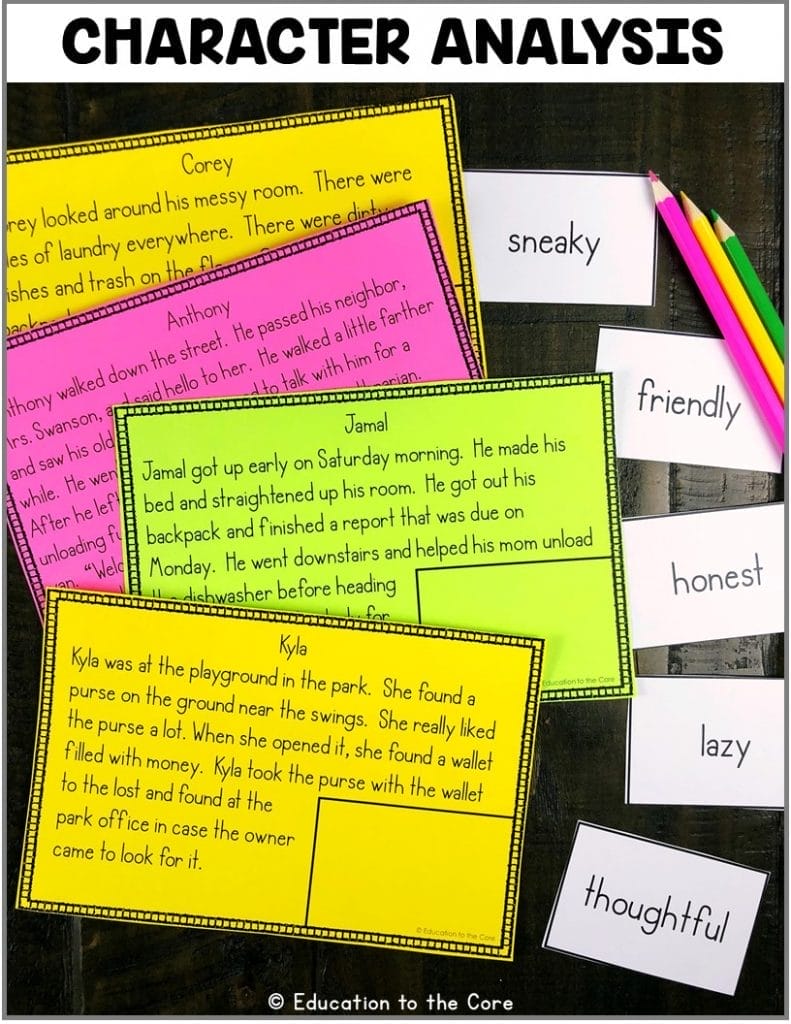 CHARACTER ANALYSIS
Corey
looked around his messy room. There were
of laundry everywhere. There were dirty
and trash on the
sneaky
Anthony
walked down the street. He passed his neighbor,
Swanson, said hello to her. He walked a little farther
and saw his old to talk with him for a
while. He went
After he left
unloading
friendly
Jamal
Jamal got up early on Saturday morning. He made his
bed and straightened up his room. He got out his
backpack and finished a report that was due on
Monday. He went downstairs and helped his mom unload
dishwasher before heading
for
Education to the Core
honest
Kyla
Kyla was at the playground in the park. She found a
purse on the ground near the swings. She really liked
the purse a lot. When she opened it, she found a wallet
filled with money. Kyla took the purse with the wallet
to the lost and found at the
park office in case the owner
came to look for it.
© Education to the Core
lazy
thoughtful
© Education to the Core